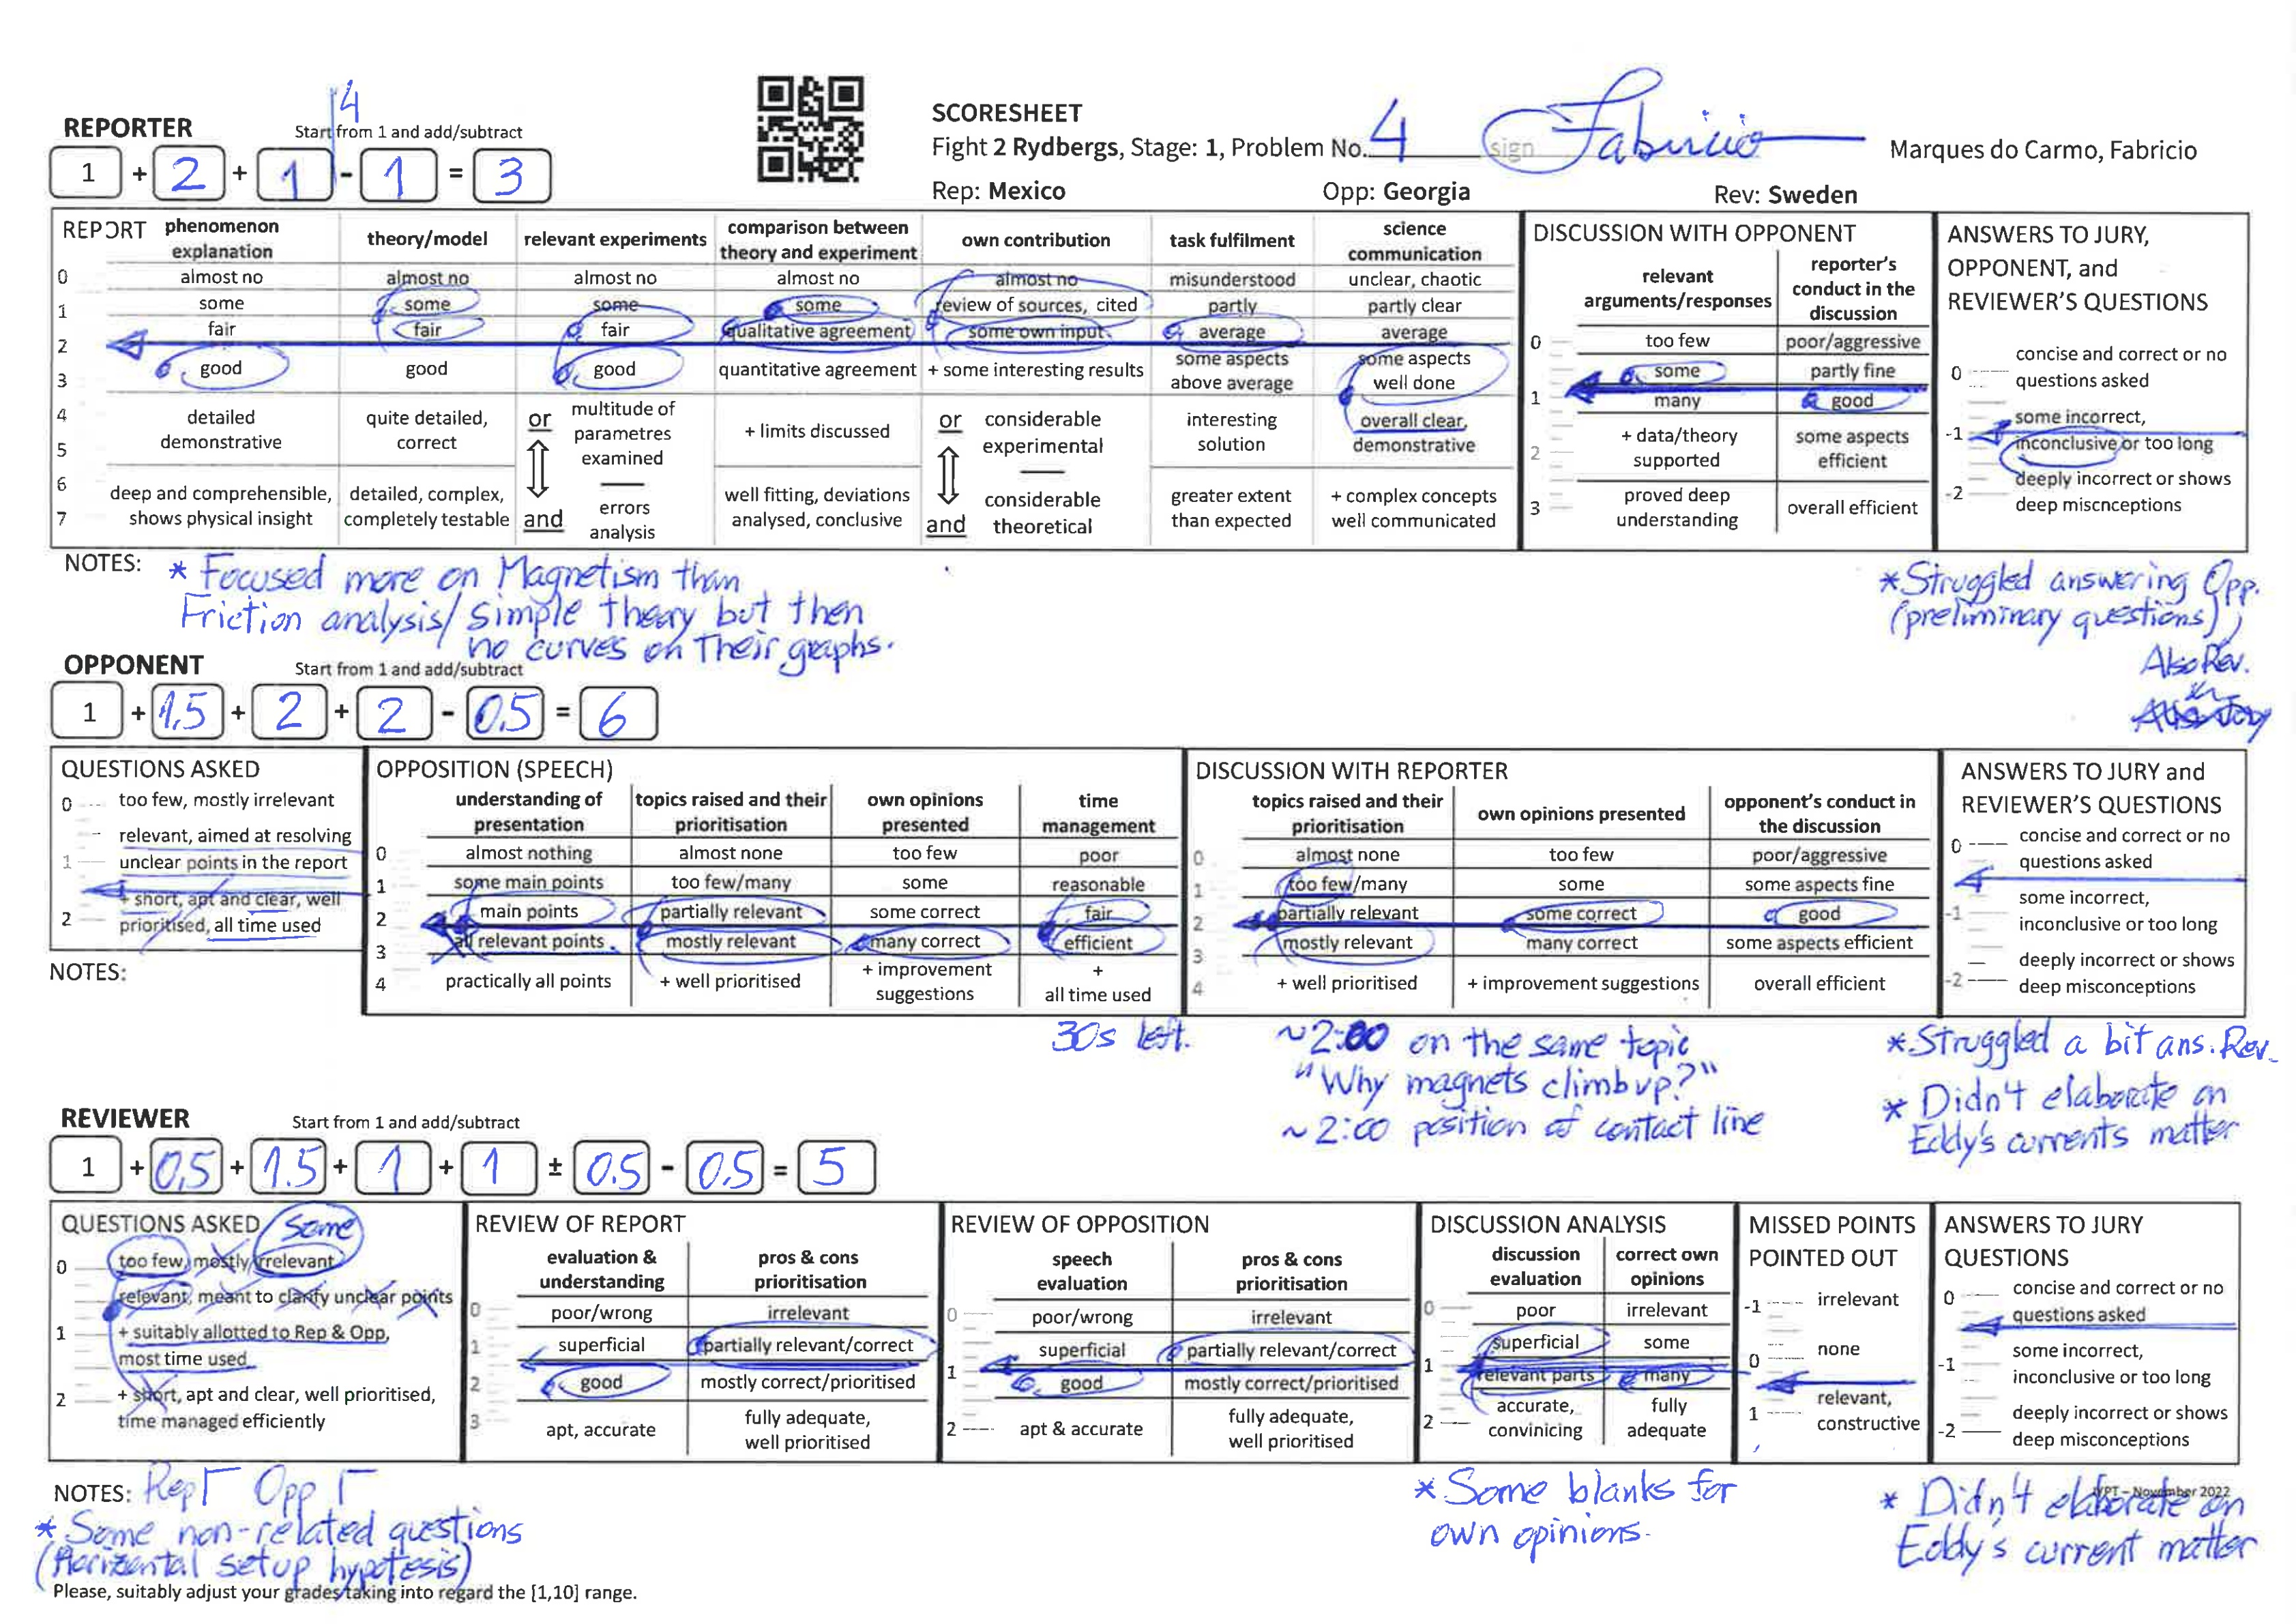 4
REPORTER Start from 1 and add/subtract
1 + 2 + 1 - 1 = 3
SCORESHEET
Fight 2 Rydbergs, Stage: 1, Problem No. 4 sign Fabricio Marques do Carmo, Fabricio
Rep: Mexico Opp: Georgia Rev: Sweden
REPORT
phenomenon explanation
theory/model
relevant experiments
comparison between theory and experiment
own contribution
task fulfilment
science communication
0 almost no almost no almost no almost no almost no misunderstood unclear, chaotic
1 some some some some review of sources, cited partly partly clear
fair fair fair qualitative agreement some own input average average
2
3 good good good quantitative agreement + some interesting results some aspects above average some aspects well done
4
5
detailed demonstrative
quite detailed, correct
or
multitude of parametres examined
+ limits discussed
or
considerable experimental
interesting solution
overall clear, demonstrative
6
7
deep and comprehensible, shows physical insight
detailed, complex, completely testable
and
errors analysis
well fitting, deviations analysed, conclusive
and
considerable theoretical
greater extent than expected
+ complex concepts well communicated
DISCUSSION WITH OPPONENT
relevant arguments/responses
reporter's conduct in the discussion
0 too few poor/aggressive
some partly fine
1 many good
2 + data/theory supported some aspects efficient
3 proved deep understanding overall efficient
ANSWERS TO JURY,
OPPONENT, and
REVIEWER'S QUESTIONS
0 concise and correct or no questions asked
-1 some incorrect, inconclusive or too long
-2 deeply incorrect or shows deep miscnceptions
NOTES: * Focused more on Magnetism than
Friction analysis/ Simple theory but then
no curves on their graphs.
* Struggled answering Opp.
(preliminary questions)
Also Rev.
OPPONENT Start from 1 and add/subtract
1 + 1,5 + 2 + 2 - 0.5 = 6
QUESTIONS ASKED
0 too few, mostly irrelevant
relevant, aimed at resolving
1 unclear points in the report
+ short, apt and clear, well
2 prioritised, all time used
NOTES:
OPPOSITION (SPEECH)
understanding of presentation
topics raised and their prioritisation
own opinions presented
time management
0 almost nothing almost none too few poor
1 some main points too few/many some reasonable
2 main points partially relevant some correct fair
3 all relevant points mostly relevant many correct efficient
4 practically all points + well prioritised + improvement suggestions + all time used
30s left.
DISCUSSION WITH REPORTER
topics raised and their prioritisation
own opinions presented
opponent's conduct in the discussion
0 almost none too few poor/aggressive
1 too few/many some some aspects fine
2 partially relevant some correct good
3 mostly relevant many correct some aspects efficient
4 + well prioritised + improvement suggestions overall efficient
~2:00 on the same topic
"Why magnets climb up?"
~2:00 position of contact line
ANSWERS TO JURY and
REVIEWER'S QUESTIONS
0 concise and correct or no questions asked
-1 some incorrect, inconclusive or too long
-2 deeply incorrect or shows deep misconceptions
* Struggled a bit ans. Rev.
* Didn't elaborate on
Eddy's currents matter
REVIEWER Start from 1 and add/subtract
1 + 0,5 + 1.5 + 1 + 1 ± 0.5 - 0.5 = 5
QUESTIONS ASKED Some
0 too few, mostly irrelevant
relevant, meant to clarify unclear points
1 + suitably allotted to Rep & Opp,
most time used
2 + short, apt and clear, well prioritised,
time managed efficiently
REVIEW OF REPORT
evaluation & understanding
pros & cons prioritisation
0 poor/wrong irrelevant
1 superficial partially relevant/correct
2 good mostly correct/prioritised
3 apt, accurate fully adequate, well prioritised
REVIEW OF OPPOSITION
speech evaluation
pros & cons prioritisation
0 poor/wrong irrelevant
superficial partially relevant/correct
1 good mostly correct/prioritised
2 apt & accurate fully adequate, well prioritised
DISCUSSION ANALYSIS
discussion evaluation
correct own opinions
0 poor irrelevant
superficial some
1 relevant parts many
2 accurate, convinicing fully adequate
MISSED POINTS
POINTED OUT
-1 irrelevant
0 none
1 relevant, constructive
ANSWERS TO JURY
QUESTIONS
0 concise and correct or no questions asked
-1 some incorrect, inconclusive or too long
-2 deeply incorrect or shows deep misconceptions
NOTES: Rep Opp
* Some non-related questions
(Horizontal setup hypotesis)
* Some blanks for
own opinions.
IYPT – November 2022
* Didn't elaborate on
Eddy's current matter
Please, suitably adjust your grades taking into regard the [1,10] range.